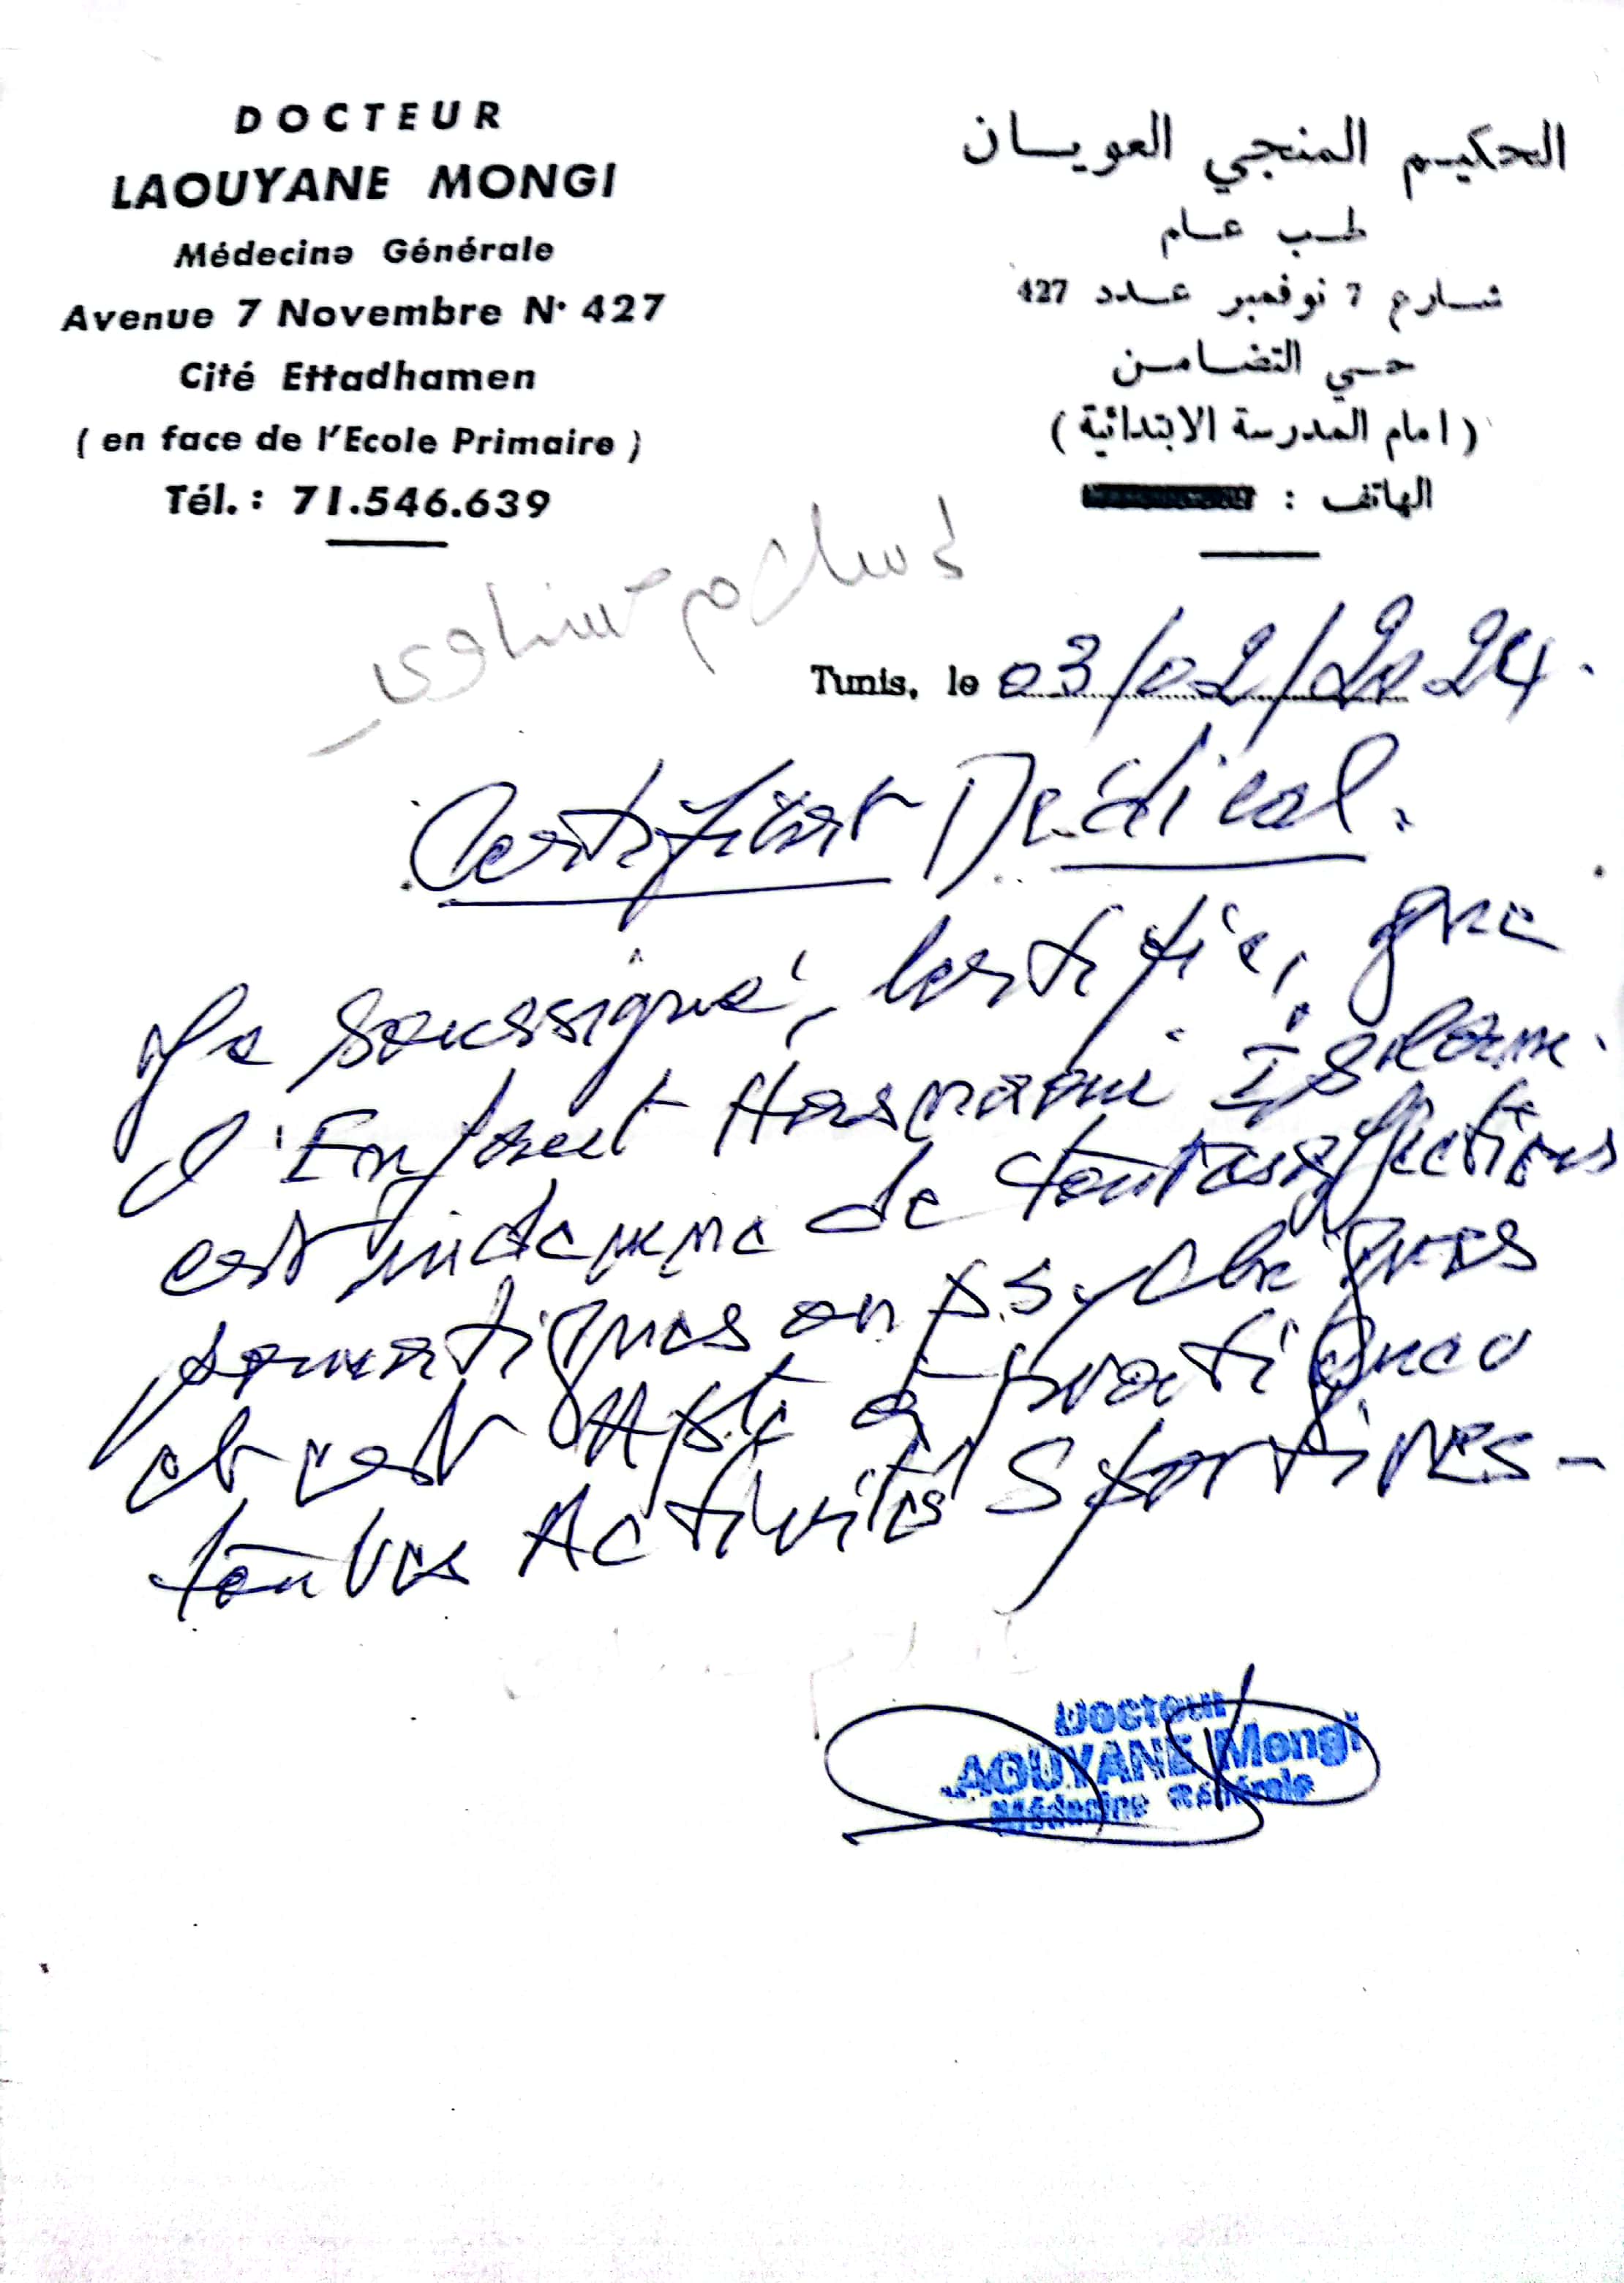 DOCTEUR
LAOUYANE MONGI
Médecine Générale
Avenue 7 Novembre N° 427
Cité Ettadhamen
( en face de l'Ecole Primaire )
Tél. : 71.546.639
الحكيم المنجي العويسان
طب عام
شارع 7 نوفمبر عدد 427
حي التضامن
( امام المدرسة الابتدائية )
الهاتف :
Tunis, le 03/02/2024.
Certificat Médical.
Je soussigné, certifie, que
l'Enfant Islam
est indemne de toutes affections
somatiques ou psychiques
et est Apte à pratiquer
toutes Activités Sportives -
Docteur
AOUYANE Mongi
Médecine Générale